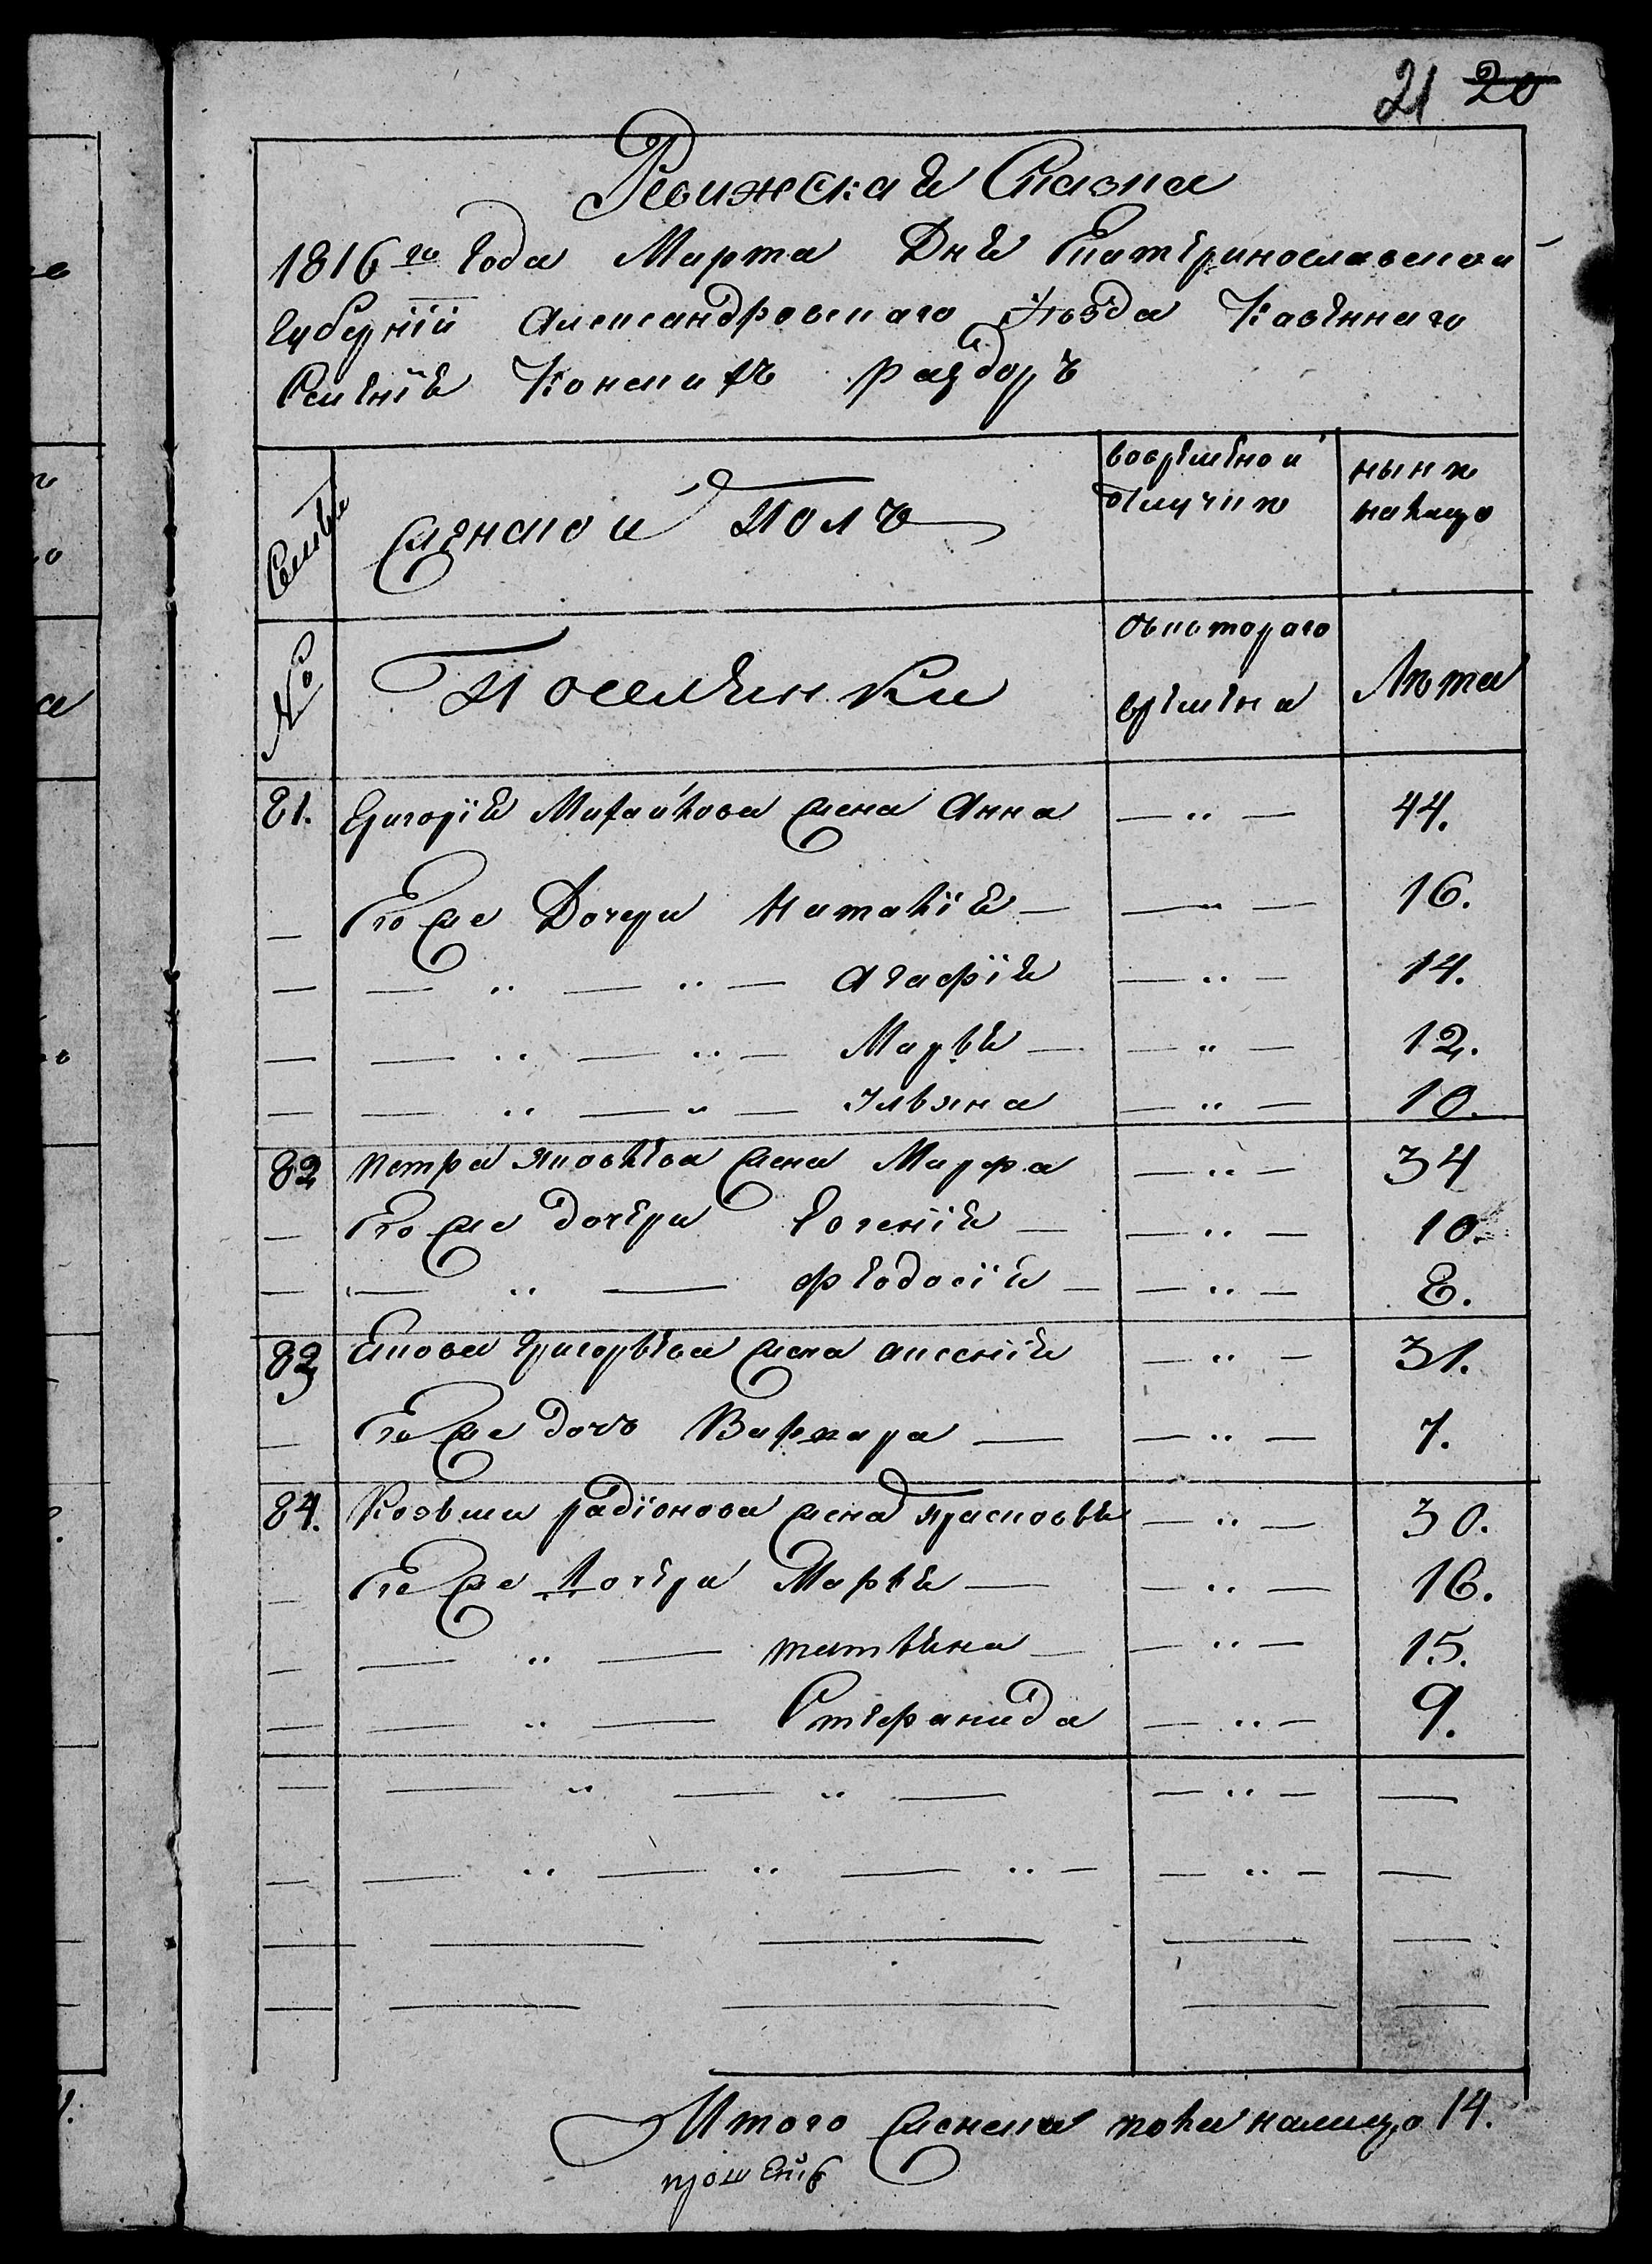 21 20
Ревижская Сказка
1816го года Марта Дня Екатеринославской
губернiи Александровскаго уѣзда Казеннаго
Селенiя Конскихъ раздоръ
Семьи
женской полъ
вовременной
отлучкѣ
нынѣ
налицо
№
Поселянки
съкотораго
времена
Лѣта
81. Григорiя Михайлова жена Анна — " — 44.
— Его же Дочери Наталiя — — " — 16.
— — " — " — Агафiя — " — 14.
— — " — " — Марья — — " — 12.
— — " — " — Ульяна — " — 10.
82 петра яковлева жена Марфа — " — 34
— Его же дочери Евгенiя — — " — 10.
— — " — феодосiя — — " — 8.
83 Якова григорьева жена аксенiя — " — 31.
— Его же дочь Варвара — — " — 7.
84. Козьми радiонова жена прасковья — " — 30.
— Его же дочери Марья — — " — 16.
— — " — татьяна — — " — 15.
— — " — Стефанида — " — 9.
— — " — " — — " — —
— — " — " — " — — " — —
— — — — —
— — — — —
Итого женска пола налицо 14.